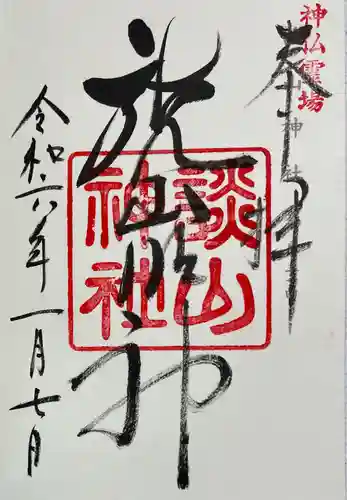 神仏霊場
奉拝
談山明神
談山神社
令和六年一月七日